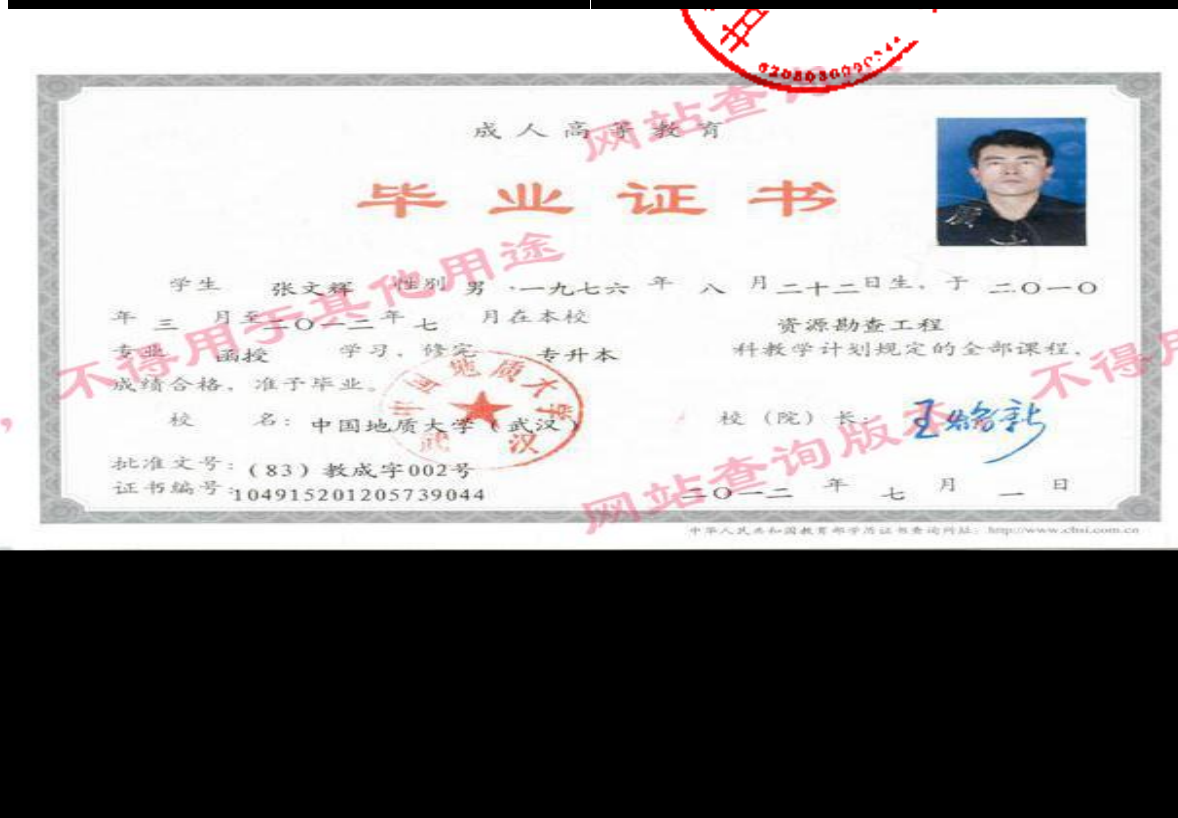 成人高等教育
毕业证书
学生 张文辉 性别 男 ·一九七六 年 八 月 二十二日生, 于 二〇一〇
年 三 月至二〇一二年 七 月在本校 资源勘查工程
专业 函授 学习, 修完 专升本 科教学计划规定的全部课程,
成绩合格, 准予毕业。
校 名: 中国地质大学(武汉) 校(院)长:
批准文号: (83)教成字002号
证书编号:104915201205739044 二〇一二 年 七 月 一 日
中华人民共和国教育部学历证书查询网址: http://www.chsi.com.cn
中国地质大学
武汉
网站查询版本, 不得用于其他用途
网站查询版本, 不得用